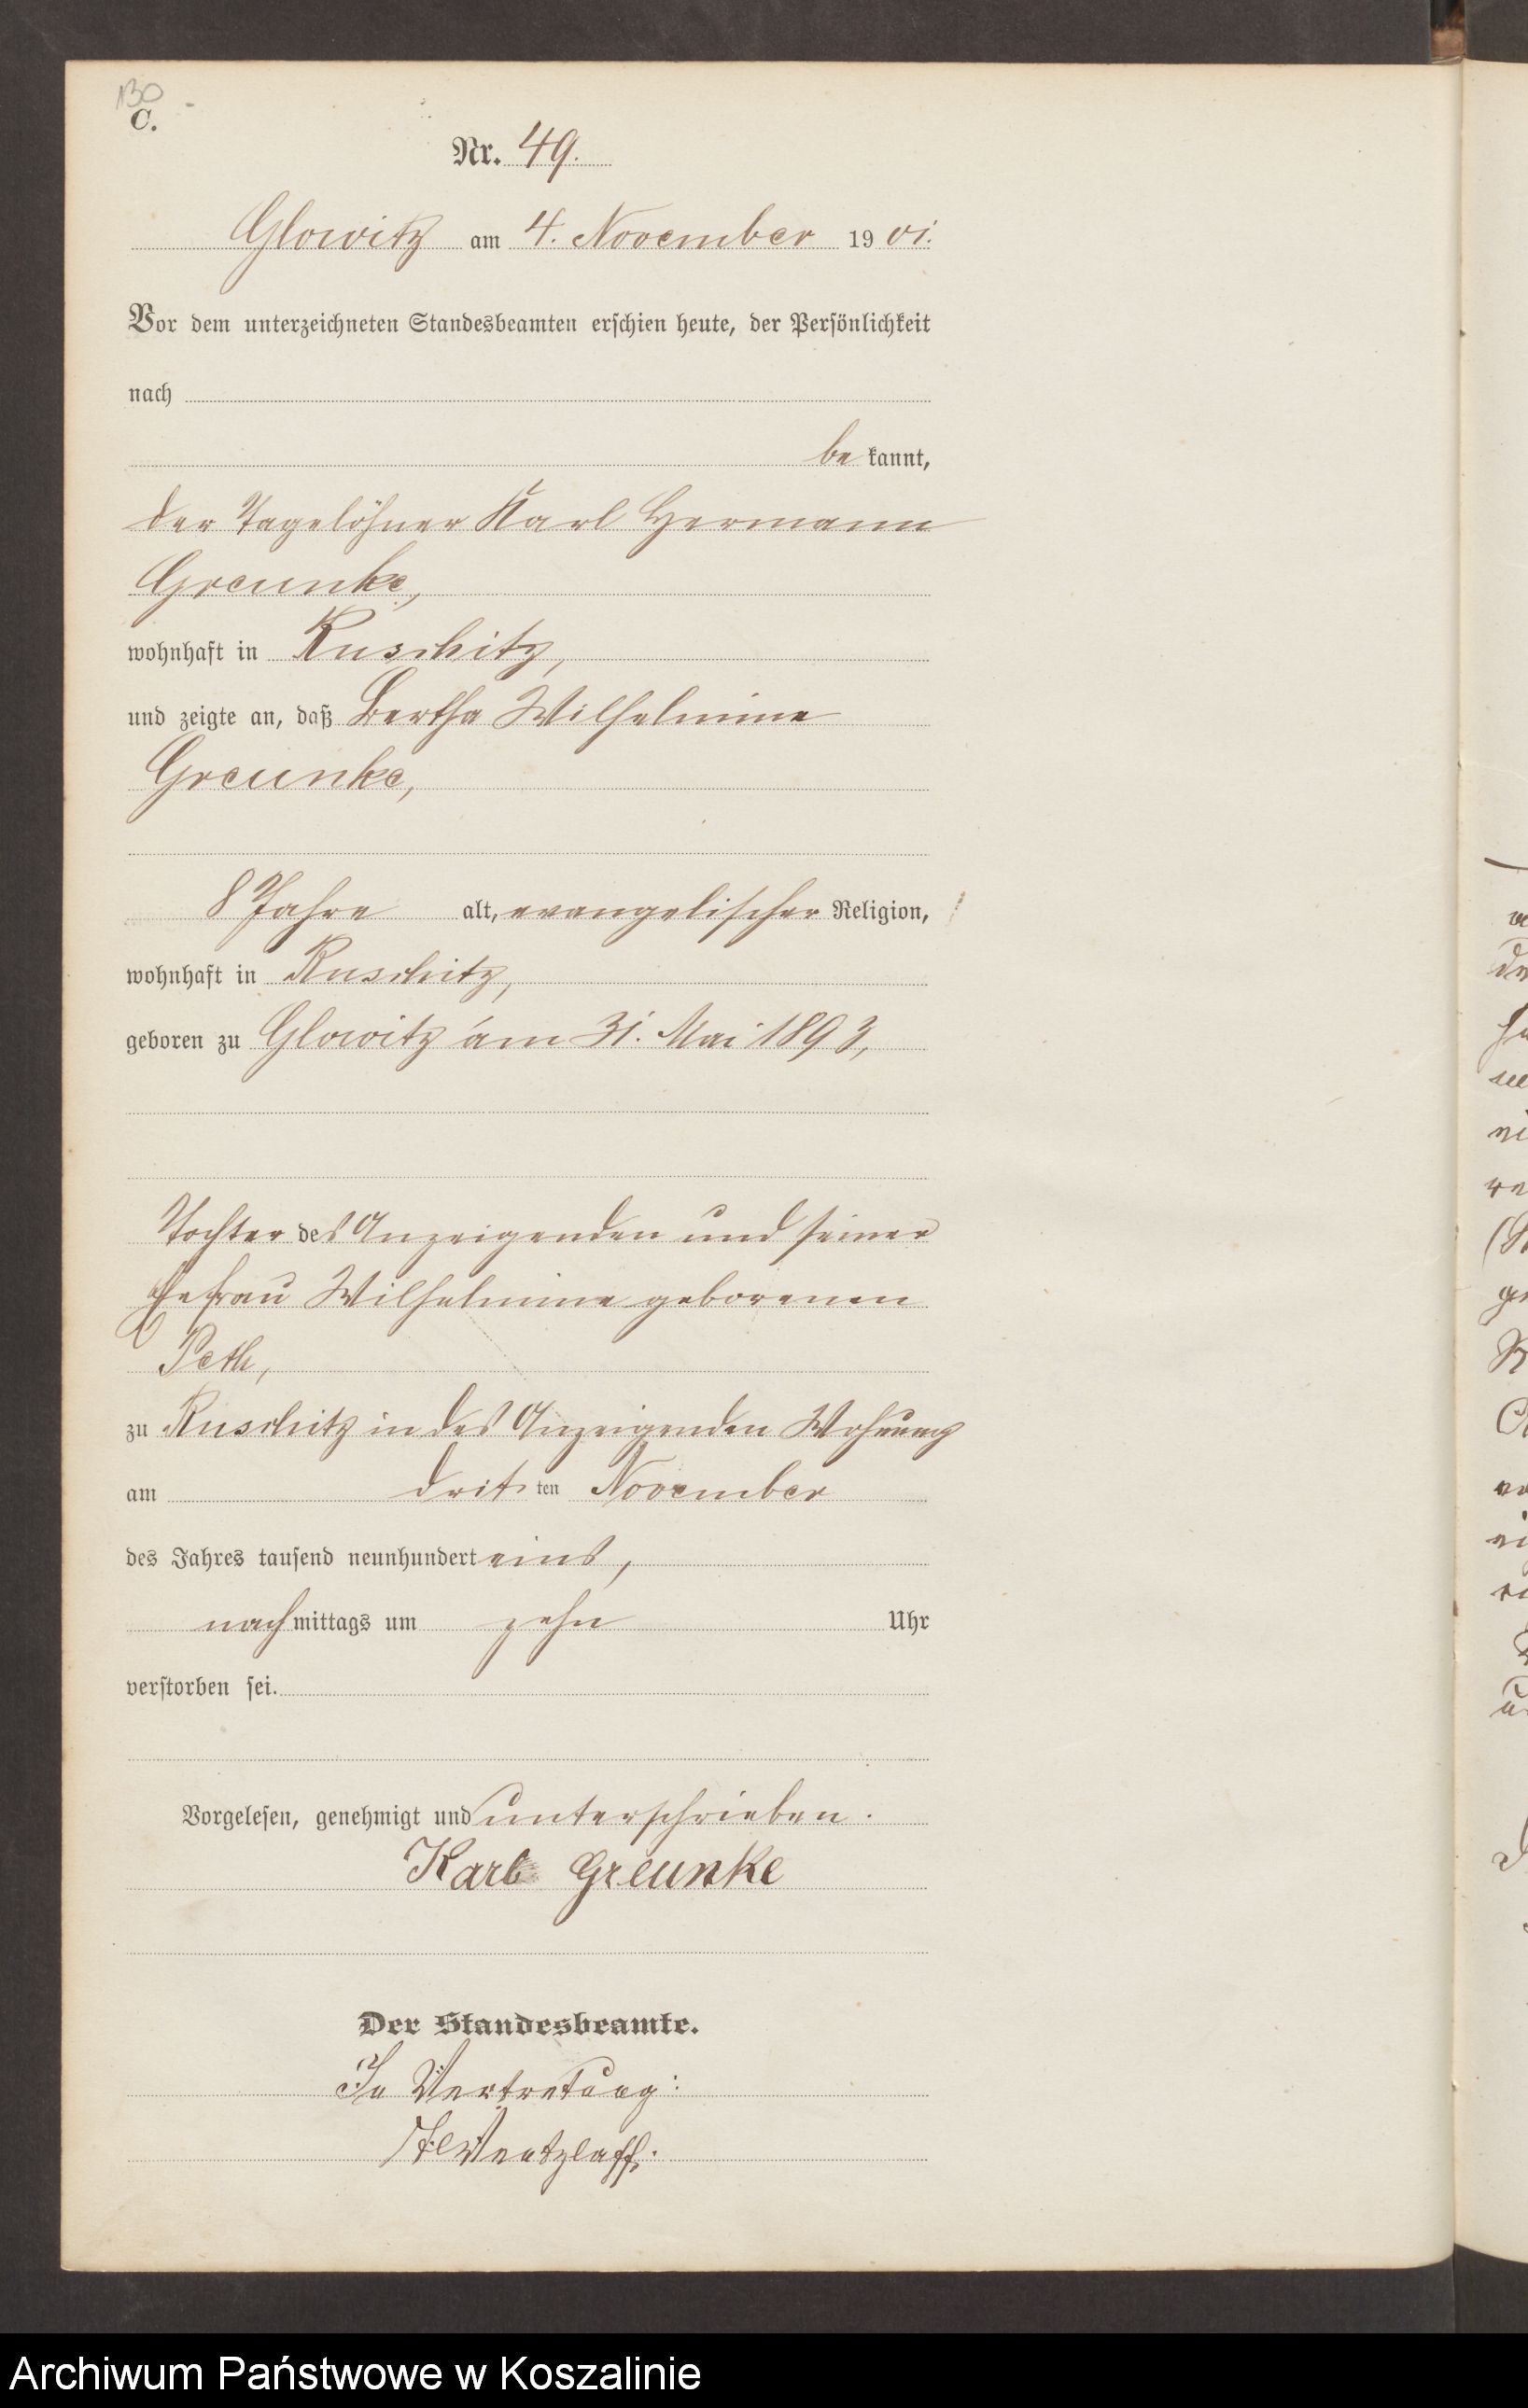 130
C.
Nr. 49.
Glowitz am 4. November 1901.
Vor dem unterzeichneten Standesbeamten erschien heute, der Persönlichkeit
nach
be kannt,
der Tagelöhner Karl Hermann
Greunke,
wohnhaft in Ruschitz,
und zeigte an, daß Bertha Wilhelmine
Greunke,
8 Jahre alt, evangelischer Religion,
wohnhaft in Ruschitz,
geboren zu Glowitz am 31. Mai 1893,
Tochter des Anzeigenden und seiner
Ehefrau Wilhelmine geborenen
Peth,
zu Ruschitz in des Anzeigenden Wohnung
am dritten November
des Jahres tausend neunhundert eins,
nachmittags um zehn Uhr
verstorben sei.
Vorgelesen, genehmigt und unterschrieben.
Karl Greunke
Der Standesbeamte.
In Vertretung:
Wentzlaff.
Archiwum Państwowe w Koszalinie